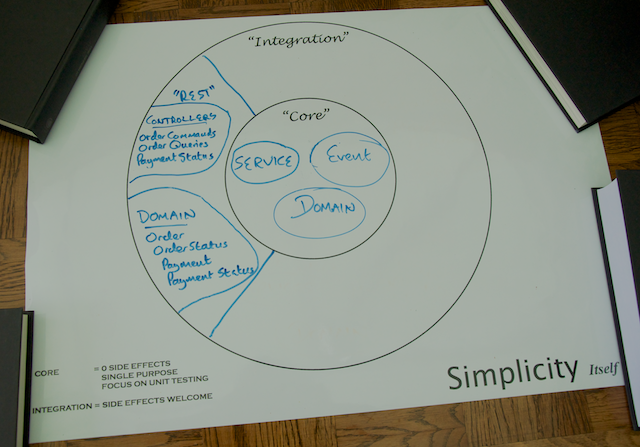 "Integration"
"REST"
CONTROLLERS
Order Commands
Order Queries
Payment Status
"Core"
SERVICE
Event
DOMAIN
DOMAIN
Order
Order Status
Payment
Payment Status
CORE = 0 SIDE EFFECTS
SINGLE PURPOSE
FOCUS ON UNIT TESTING
INTEGRATION = SIDE EFFECTS WELCOME
Simplicity Itself